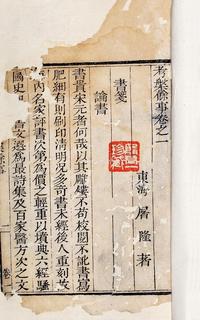 考槃餘事卷之一
東海 屠隆 著
書箋
論書
書貴宋元者何哉以其雕鏤不苟校閱不訛書寫
肥細有則刷印清明況多奇書未經後人重刻故
內名家評書次第為價之輕重以墳典六經騷
國史 書文選為最詩集及百家醫方次之文
卷一